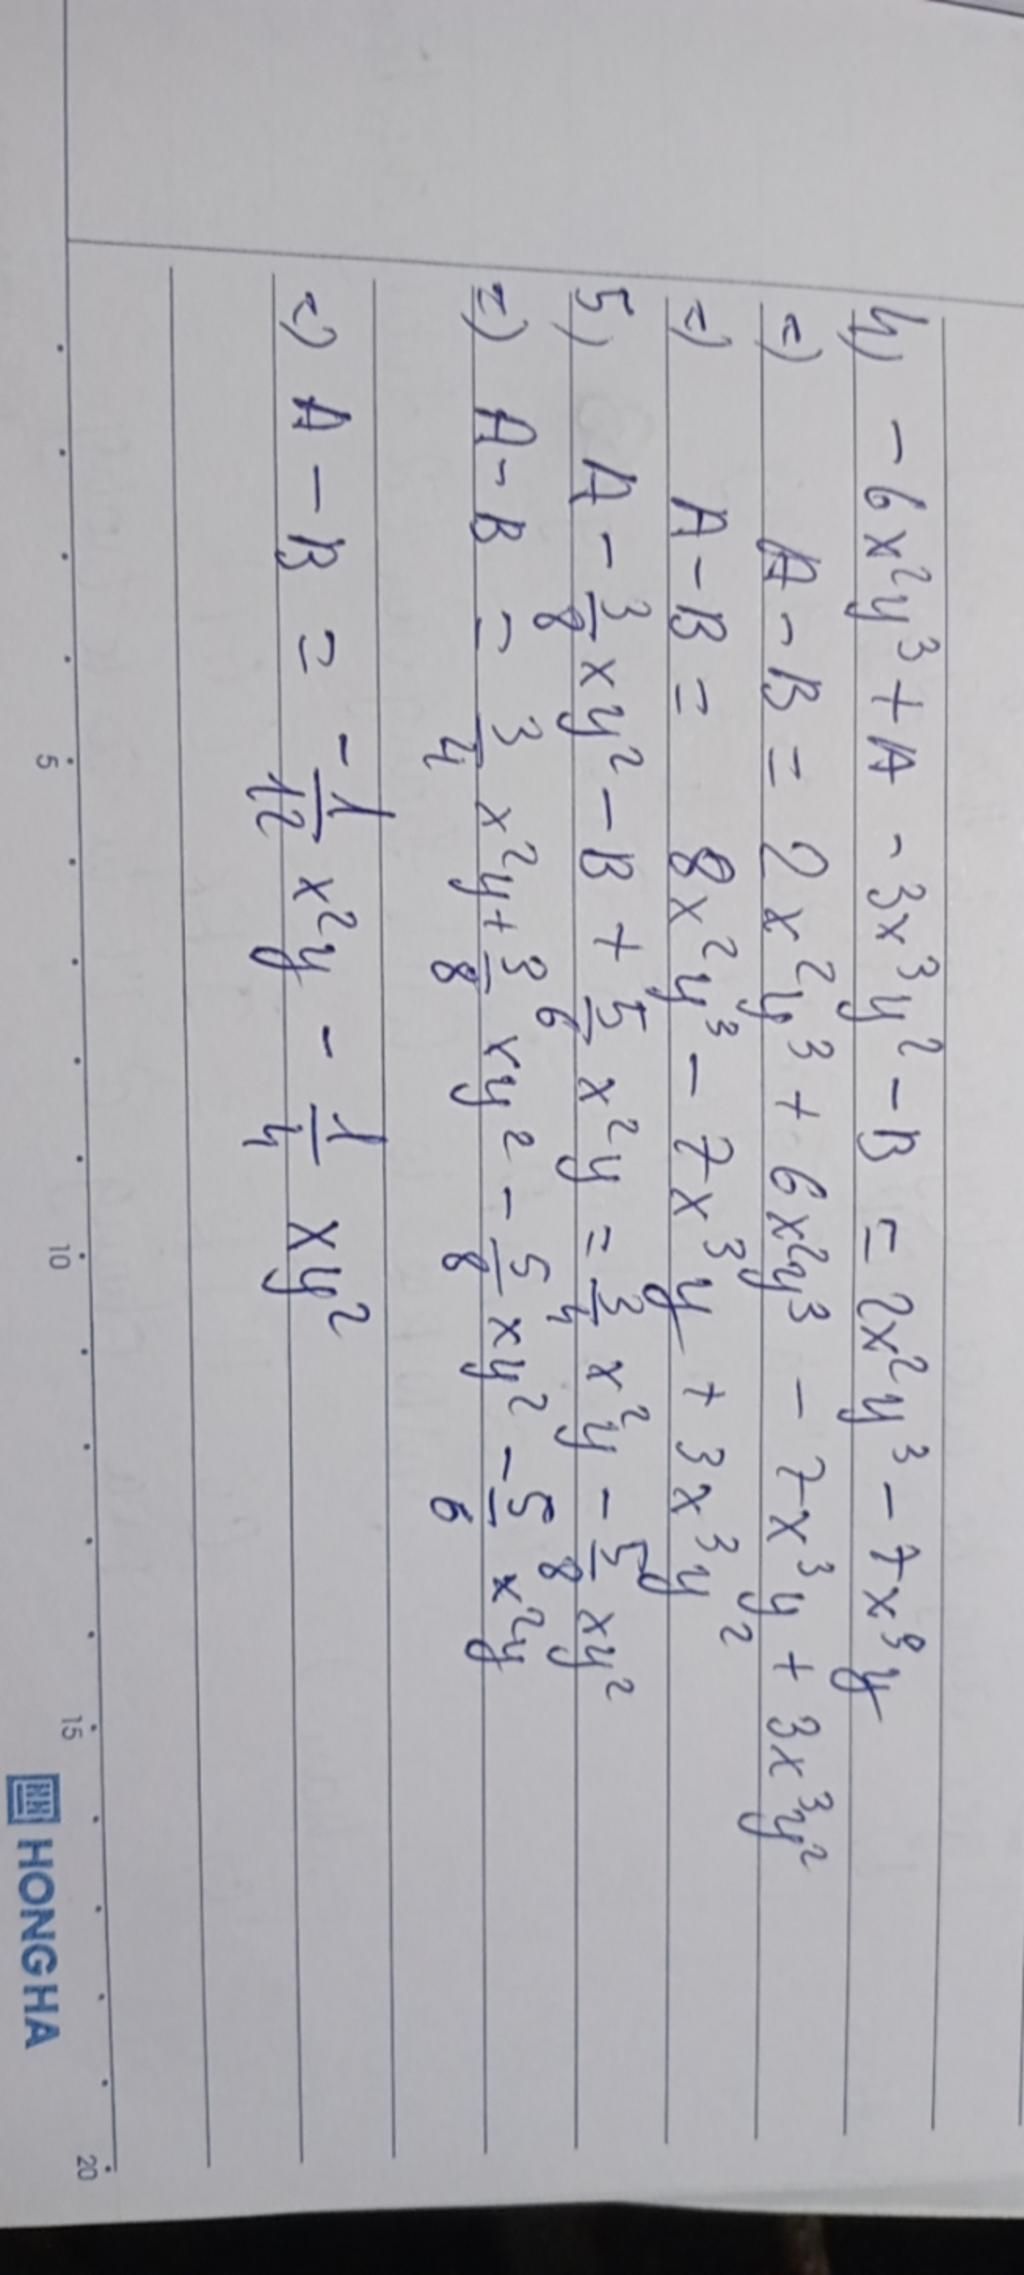 4) - 6x²y³ + A - 3x³y² - B = 2x²y³ - 7x³y
=) A - B = 2x²y³ + 6x²y³ - 7x³y + 3x³y²
=) A - B = 8x²y³ - 7x³y + 3x³y²
5) A - 3/8 xy² - B + 5/6 x²y = 3/4 x²y - 5/8 xy²
=) A - B = 3/4 x²y + 3/8 xy² - 5/8 xy² - 5/6 x²y
=) A - B = - 1/12 x²y - 1/4 xy²
5 10 15 20
HONG HA